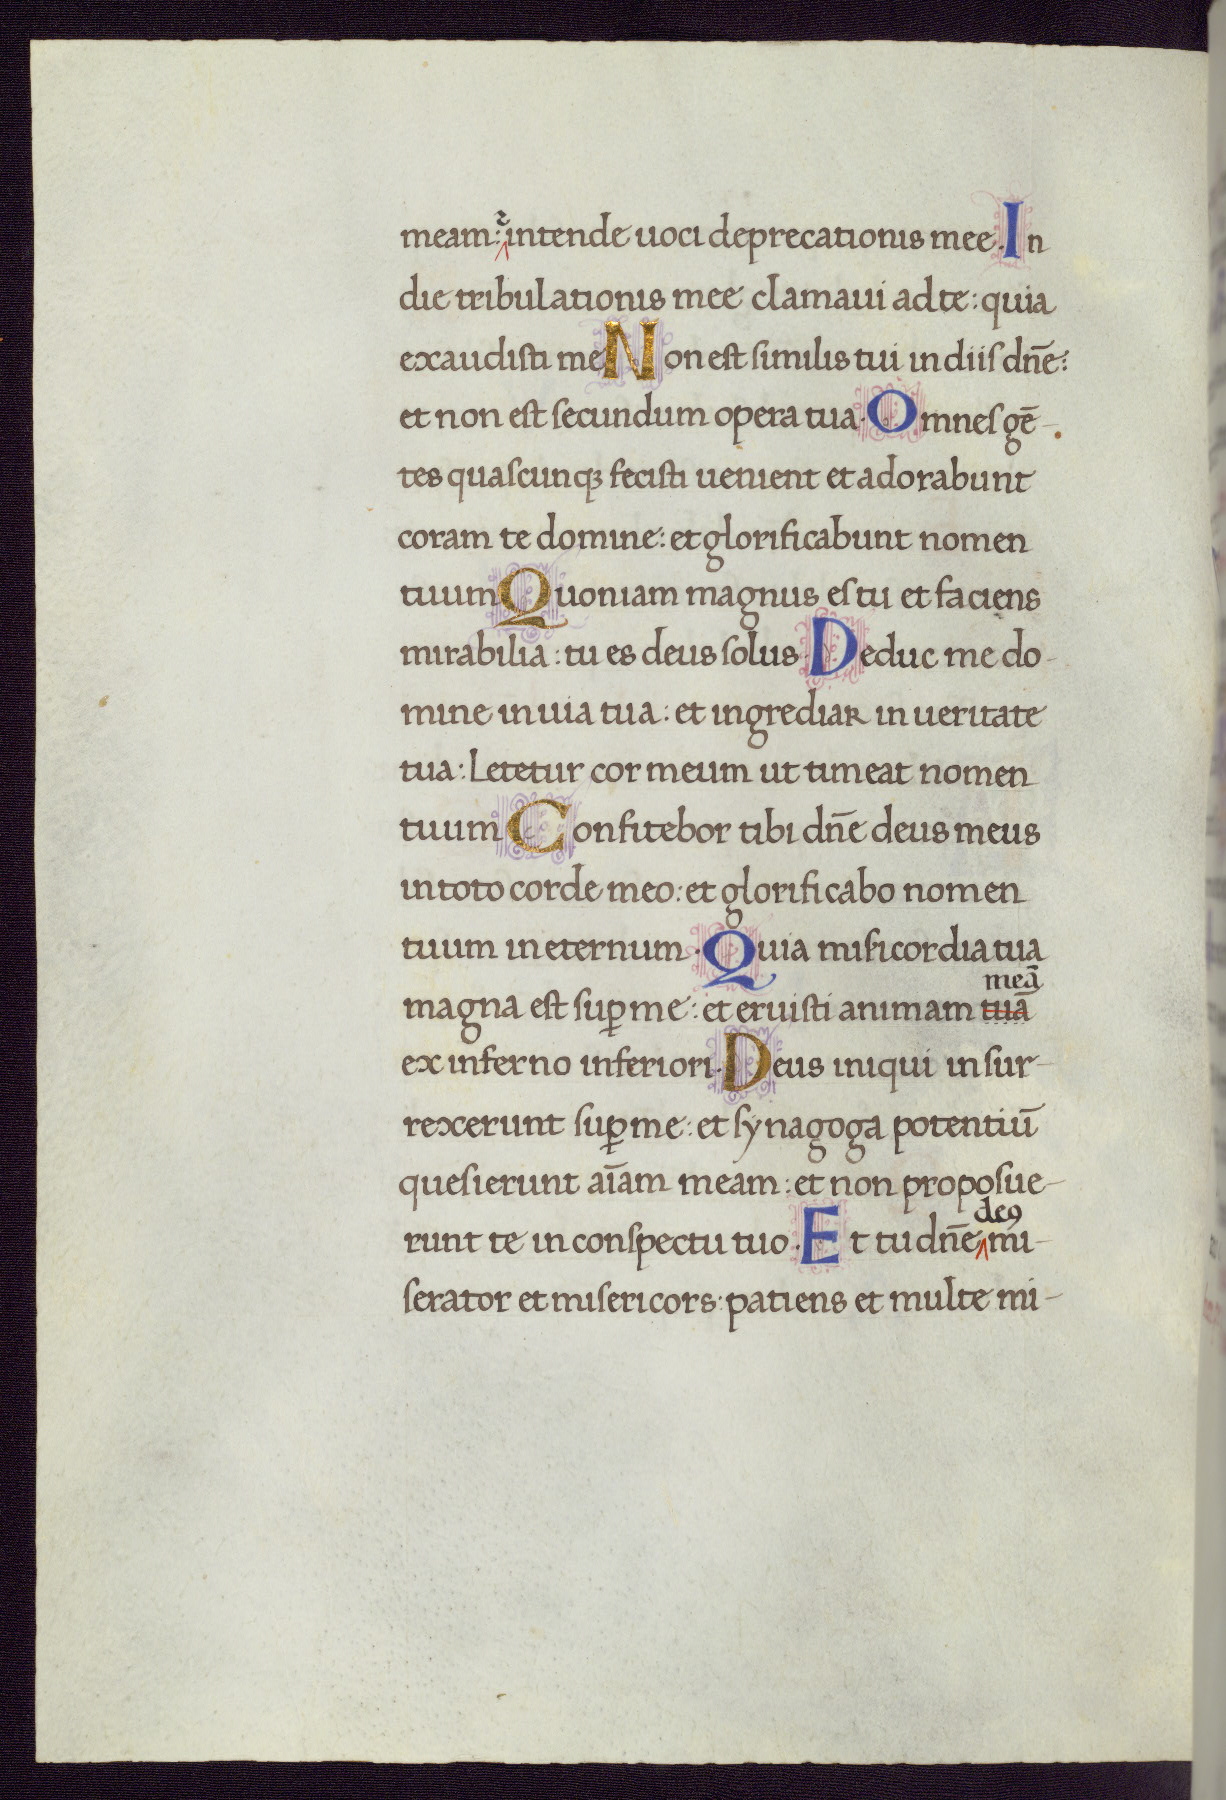 meam: ⁊ intende uoci deprecationis mee. In
die tribulationis mee clamaui ad te: quia
exaudisti me Non est similis tui in diis dñe:
et non est secundum opera tua. Omnes gē-
tes quascunqꝫ fecisti uenient et adorabunt
coram te domine: et glorificabunt nomen
tuum Quoniam magnus es tu et faciens
mirabilia: tu es deus solus. Deduc me do-
mine in uia tua: et ingrediar in ueritate
tua: Letetur cor meum ut timeat nomen
tuum Confitebor tibi dñe deus meus
in toto corde meo: et glorificabo nomen
tuum in eternum. Quia misicordia tua
meā
magna est suꝑ me: et eruisti animam tuā
ex inferno inferiori. Deus iniqui insur-
rexerunt suꝑ me: et synagoga potentiū
quesierunt aīam meam: et non proposue-
deꝯ
runt te in conspectu tuo. Et tu dñe mi-
serator et misericors: patiens et multe mi-